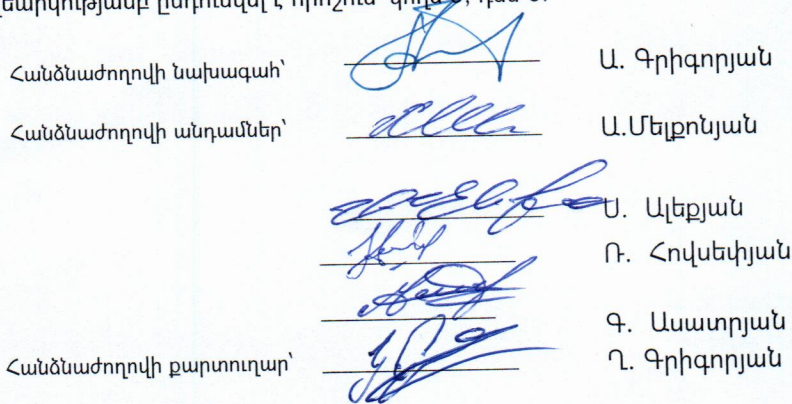 ընդունվել է որոշում՝ կողմ 5, դեմ 0:
Հանձնաժողովի նախագահ՝ Ա. Գրիգորյան
Հանձնաժողովի անդամներ՝ Ա.Մելքոնյան
Ս. Ալեքյան
Ռ. Հովսեփյան
Գ. Ասատրյան
Հանձնաժողովի քարտուղար՝ Ղ. Գրիգորյան